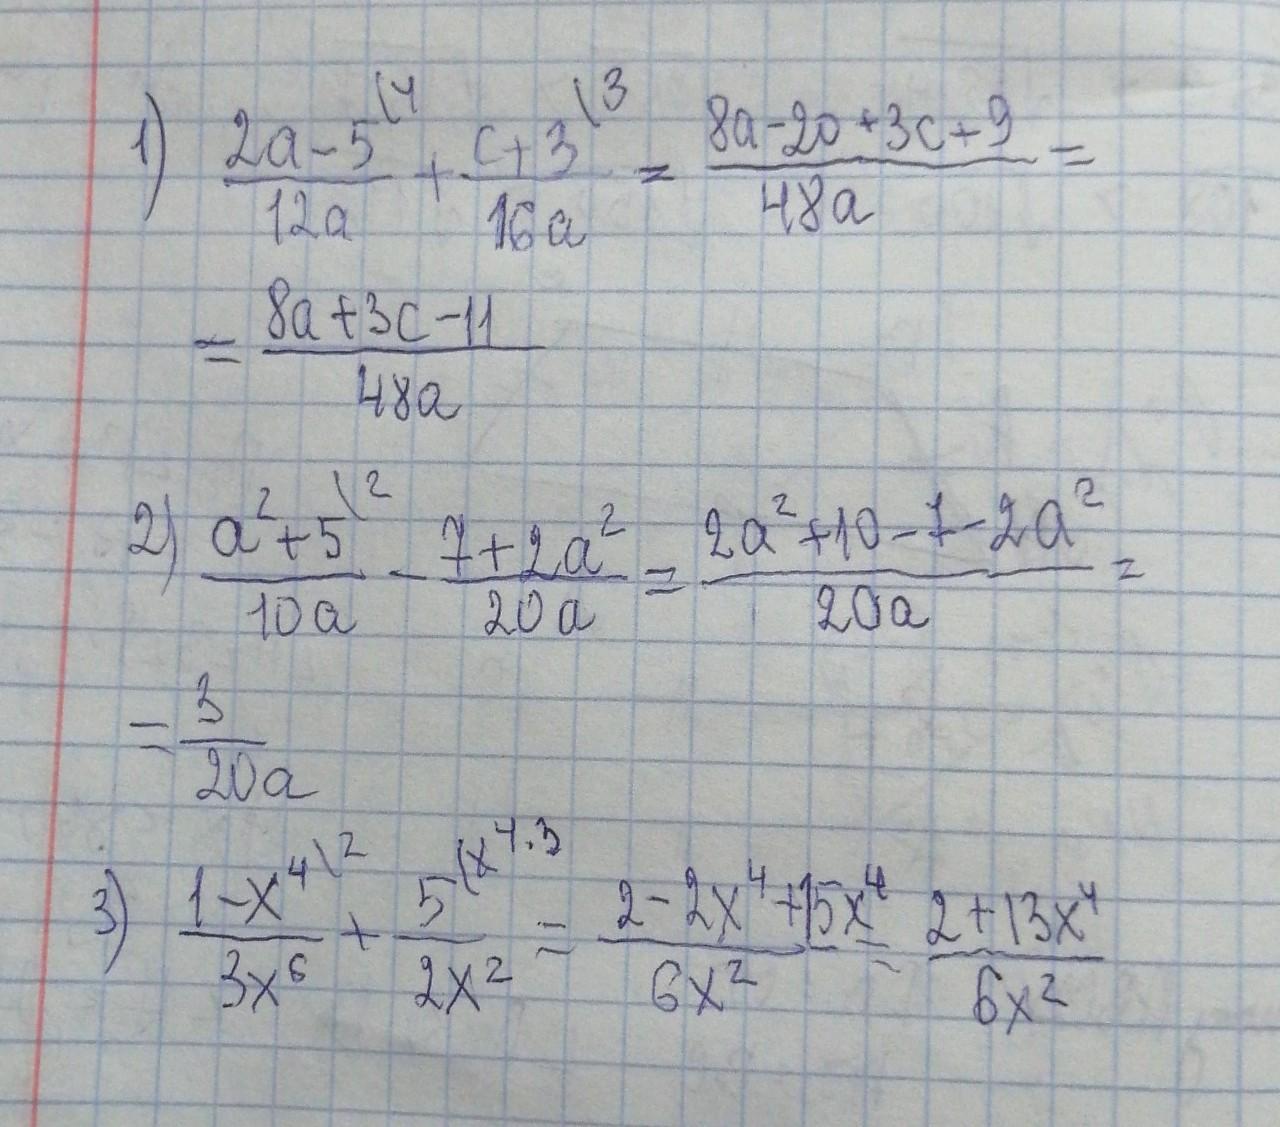 1) (2a-5)/(12a) \4 + (c+3)/(16a) \3 = (8a-20+3c+9)/(48a) =
= (8a+3c-11)/(48a)
2) (a²+5)/(10a) \2 - (7+2a²)/(20a) = (2a²+10-7-2a²)/(20a) =
= 3/(20a)
3) (1-x⁴)/(3x⁶) \2 + 5/(2x²) \x⁴·3 = (2-2x⁴+15x⁴)/(6x²) = (2+13x⁴)/(6x²)